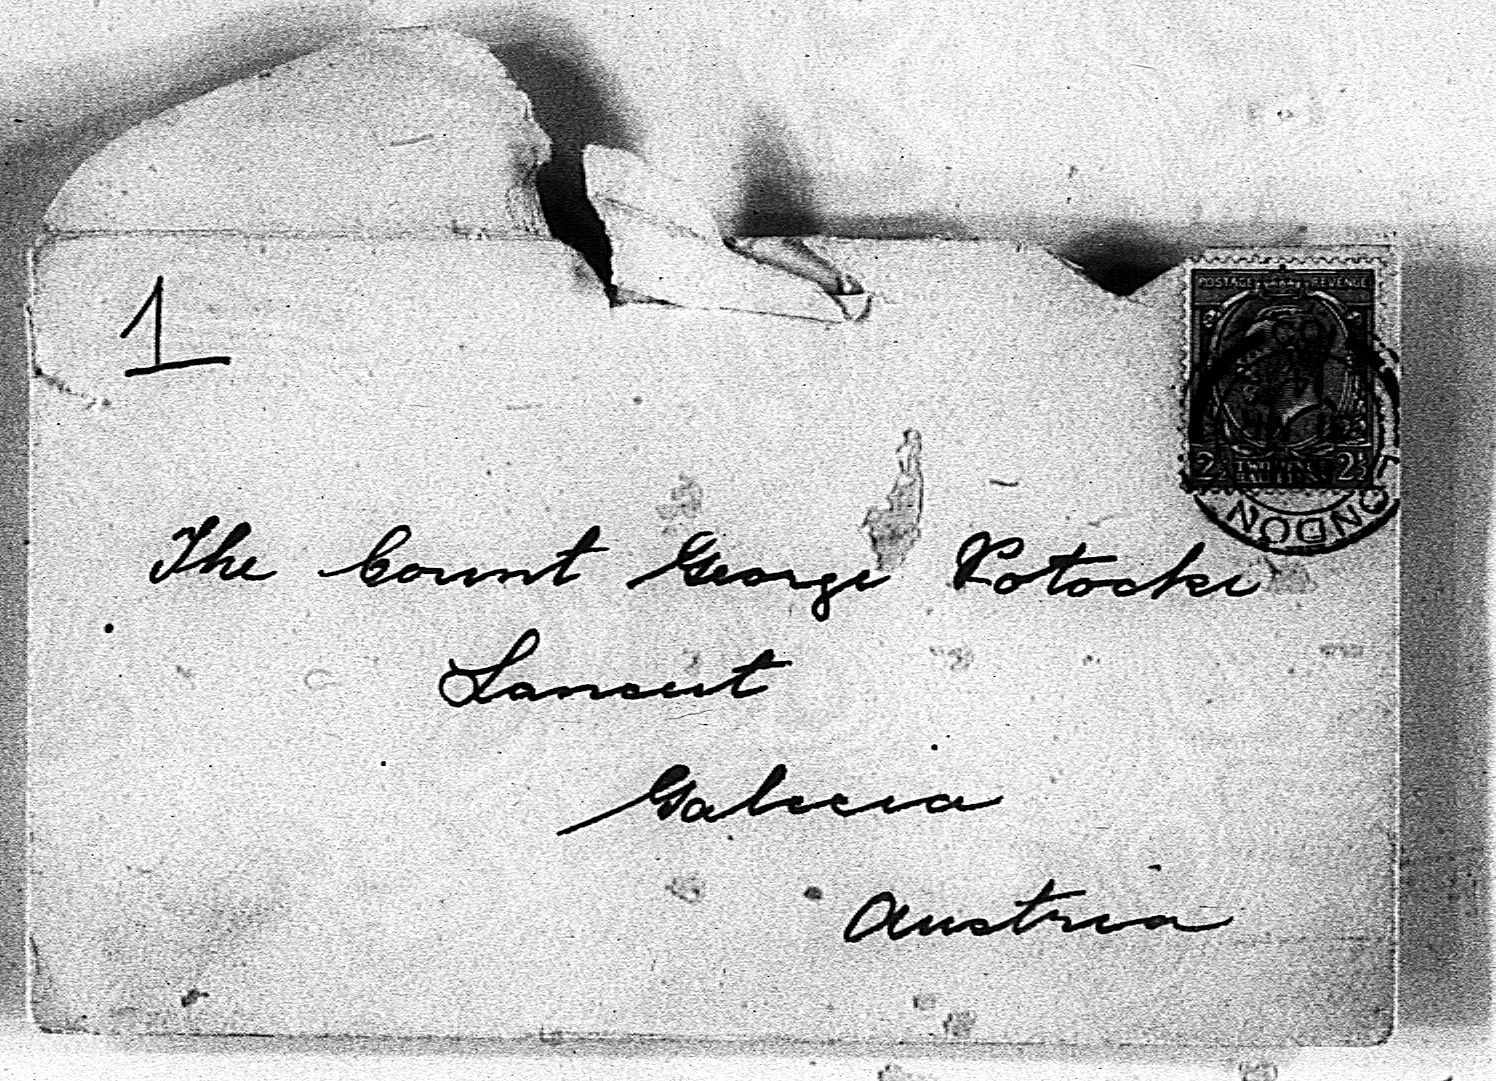 1
POSTAGE REVENGE
2½ 2½
LONDON
The Count George Potocki
Lancut
Galicia
Austria